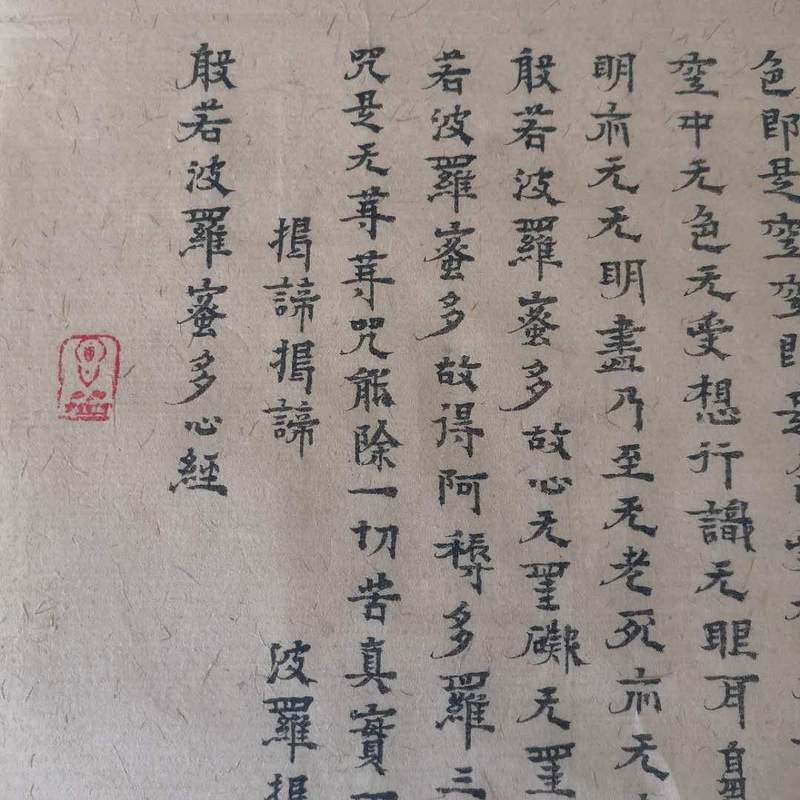 色即是空空即是
空中无色无受想行識无眼耳鼻
明亦无无明盡乃至无老死亦无
般若波羅蜜多故心无罣礙无罣
若波羅蜜多故得阿耨多羅三
咒是无等等咒能除一切苦真實
揭諦揭諦 波羅揭
般若波羅蜜多心經